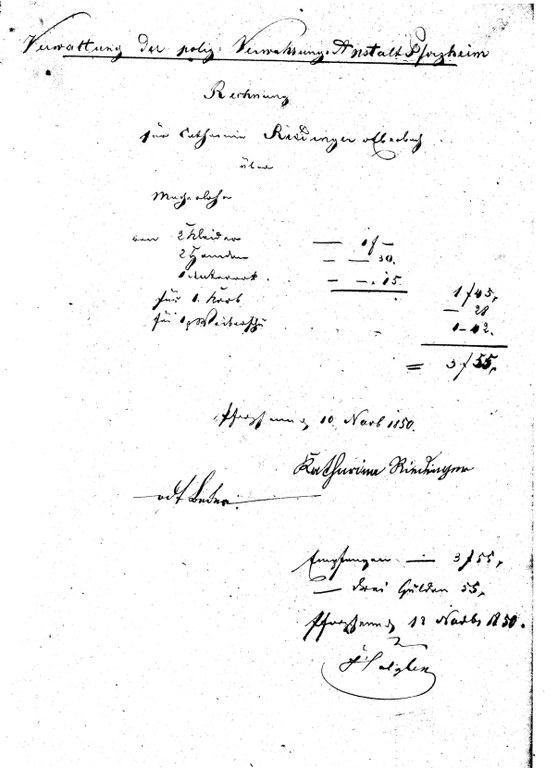 Verwaltung der poliz. Verwahrungs-Anstalt Pforzheim
Rechnung
für Catharina Riedinger
über
Macherlohn
von 2 Kleider — 1 f —
2 Hemden — — 30.
1 Unterrock. — — . 15.
1 f 45,
für 1. Korb — 28
für 1 p 1 - 42.
= 3 f 55,
Pforzheim d 10. Novb 1850.
Katharina Riedinger
Empfangen — 3 f 55,
— drei Gulden 55,
Pforzheim d 12 Novbr 1850.